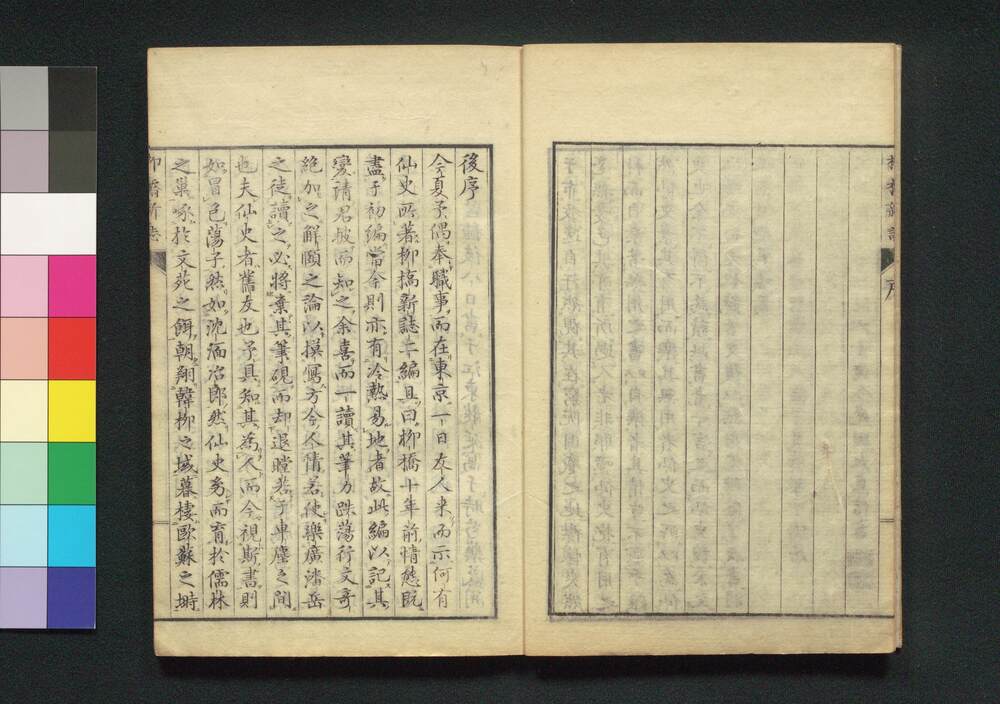 後序
今夏予偶奉職事而在東京一日友人来而示何有
仙史所著柳橋新誌二編且曰柳橋十年前情態既
盡于初編當今則亦有冷熱易地者故此編以記其
變請君披而知之余喜而一讀其筆力跌蕩行文奇
絶加之解頤之論以摸寫方今人情若使樂廣潘岳
之徒讀之必將棄其筆硯而却退瞠若于車塵之間
也夫仙史者舊友也予具知其為人而今視斯書則
如冒色蕩子然如沈湎冶郎然仙史夯而育於儒林
之巢啄於文苑之餌朝翔韓柳之域暮棲歐蘇之塒
柳橋新誌
序